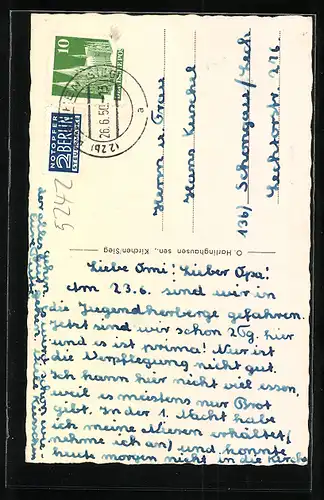 10
NOTOPFER
2 BERLIN
STEUERMARKE
26.6.50
a
(22b)
5242
Herrn u. Frau
Hans Kuchel
13b) Schongau/Lech
Lechtorstr. 226
O. Horlinghausen sen., Kirchen/Sieg
Liebe Omi! Lieber Opa!
Am 23.6. sind wir in
die Jugendherberge gefahren.
Jetzt sind wir schon 2 Tg. hier
und es ist prima! Nur ist
die Verpflegung nicht gut.
Ich kann hier nicht viel essen,
weil es meistens nur Brot
gibt. In der 1. Nacht habe
ich meine Nieren erhältet/
nehme ich an/ und konnte
heute morgen nicht in die Kirche